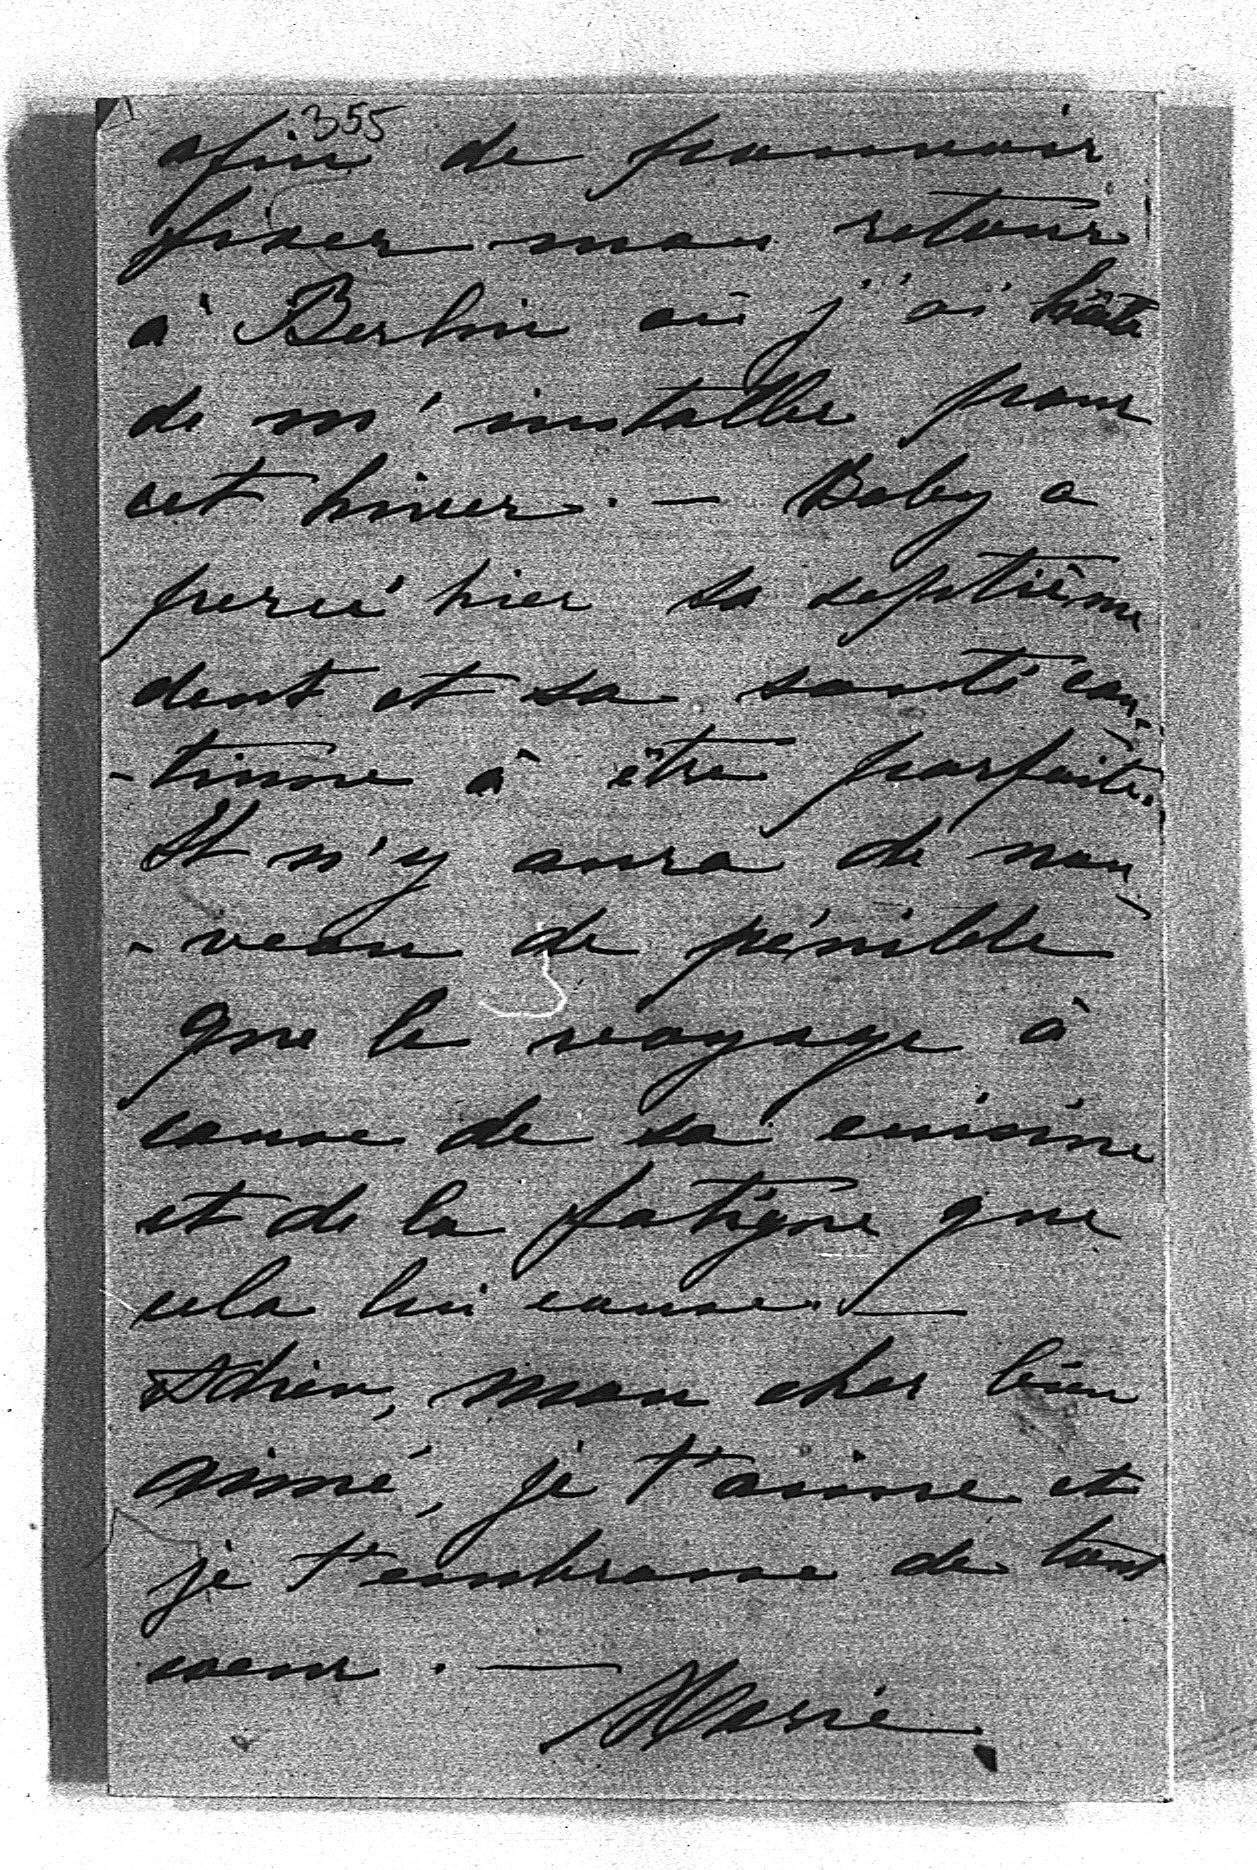 355
afin de pouvoir
fixer mon retour
à Berlin où j'ai hâte
de m'installer pour
cet hiver. — Baby a
percé hier sa septième
dent et sa santé con-
-tinue à être parfaite.
Il n'y aura de nou-
-veau de pénible
que le voyage à
cause de sa cuisine
et de la fatigue que
cela lui cause. —
Adieu, mon cher bien
aimé, je t'aime et
je t'embrasse de tout
coeur. —
Marie.